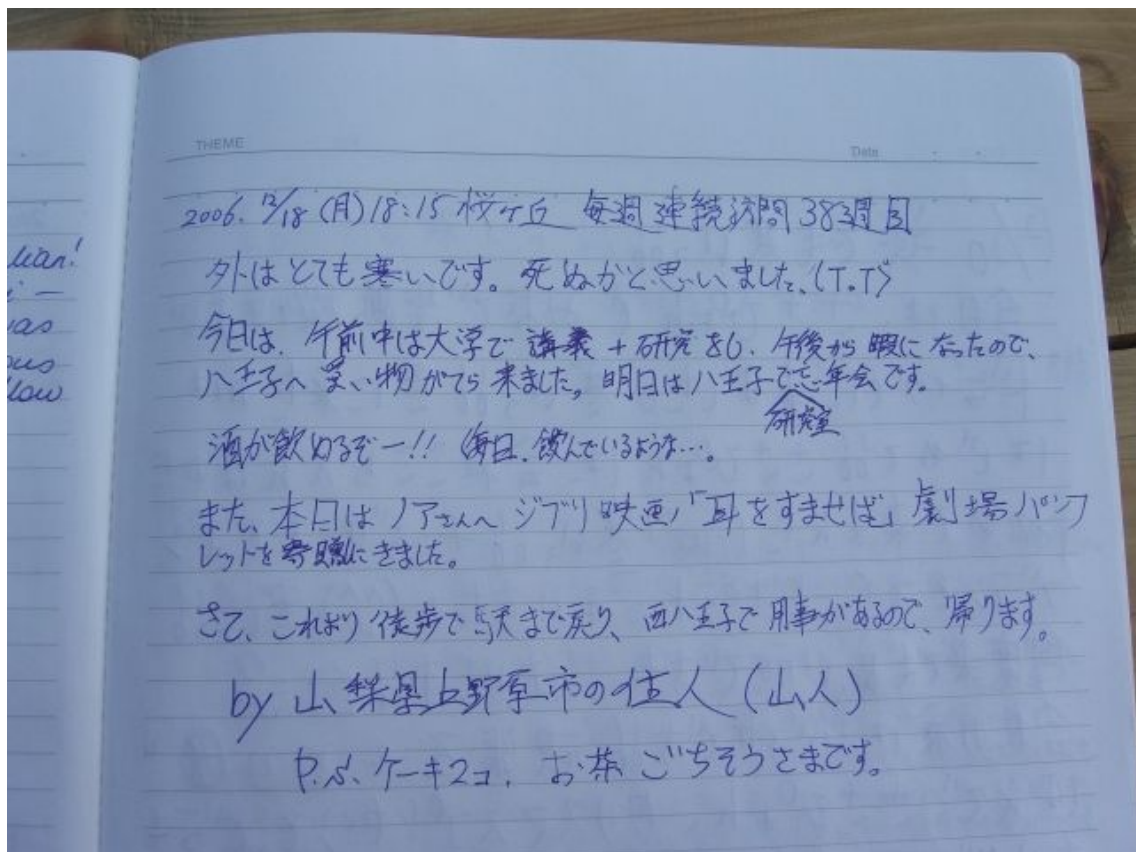 lian!
as
ous
low
THEME
Date
2006. 12/18 (月) 18:15 桜ヶ丘 毎週連続訪問38週目
外はとても寒いです。死ぬかと思いました。(T.T)
今日は、午前中は大学で講義+研究をし、午後から暇になったので、
八王子へ買い物がてら来ました。明日は八王子で忘年会です。
研究室
酒が飲めるぞー!! (毎日、飲んでいるような…。
また、本日はノアさんへジブリ映画「耳をすませば」劇場パンフ
レットを寄贈にきました。
さて、これより徒歩で駅まで戻り、西八王子で用事があるので、帰ります。
by 山梨県上野原市の住人(山人)
P.S. ケーキ2コ、お茶ごちそうさまです。